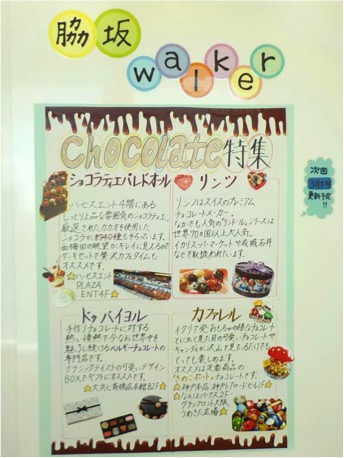 脇坂
walker
Chocolate特集
次回
更新予定!!
ショコラティエパレドオール
ハービスエント4階にある
しっとり上品な雰囲気のショコラティエ。
厳選されたカカオを使用した
ショコラが約40種もそろっています。
西梅田の眺望がキレイに見えるので
ケーキセットで贅沢カフェタイムも
オススメです。
☆ハービスエント
PLAZA
ENT4F☆
リンツ
リンツはスイスのプレミアム
チョコレートメーカー。
なかでも人気の"リンドール"シリーズは
世界70ヶ国以上で大人気。
イカリスーパーマーケットや成城石井
などで取扱われています。
ドゥバイヨル
手作りチョコレートに対する
熱い情熱で少なお世界中を
魅了し続けるベルギーチョコレートの
専門店です。
クラシックテイストの可愛いデザイン
BOXでギフトにオススメです。
☆大丸心斎橋店本館B2F☆
カファレル
イタリア発おもちゃの様なチョコレート
とにかく見た目の可愛いチョコレートや
キャンディが沢山で見ているだけでも
とっても楽しめます。
オススメは定番商品の
きのこポットチョコレートです。
☆神戸本店 神戸北野
☆なんばパークス2F
グランフロント大阪
うめきた広場☆